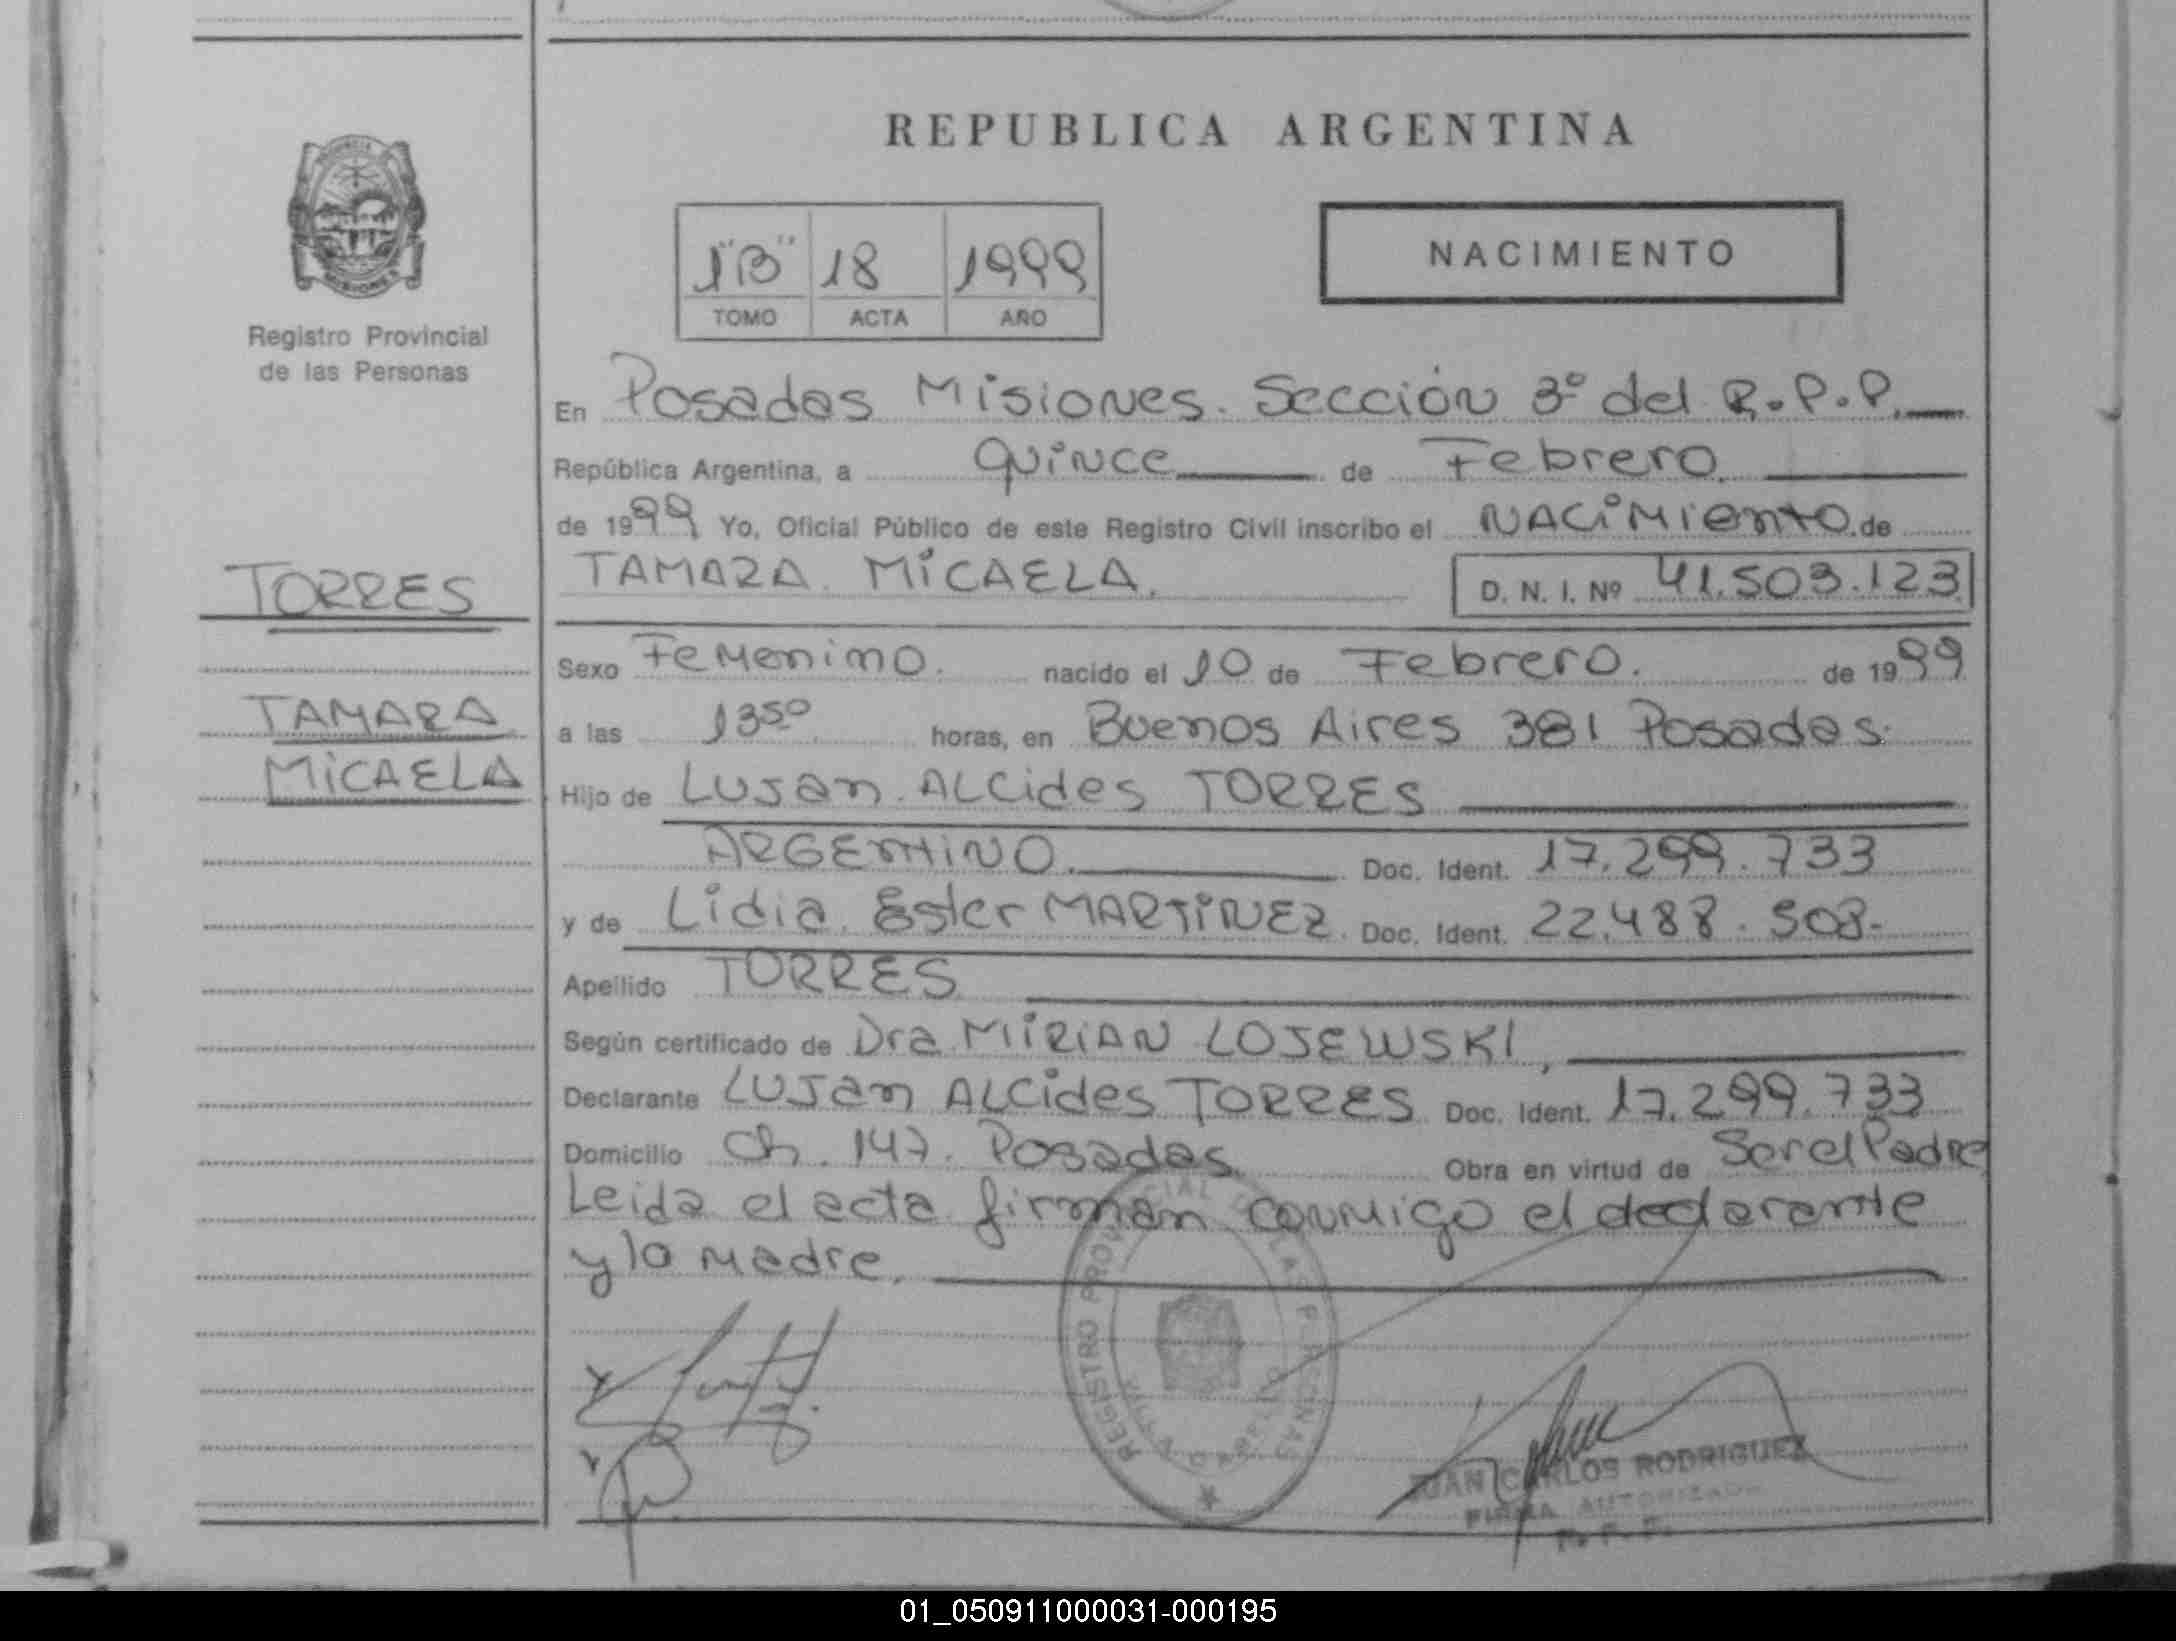 REPUBLICA ARGENTINA
1"B" 18 1999
TOMO ACTA AÑO
NACIMIENTO
PROVINCIA
MISIONES
Registro Provincial
de las Personas
TORRES
TAMARA
MICAELA
En Posadas Misiones. Sección 3º del R.P.P.
República Argentina, a quince de Febrero.
de 1999 Yo, Oficial Público de este Registro Civil inscribo el NACIMIENTO de
TAMARA MICAELA. D. N. I. Nº 41.503.123
Sexo Femenino. nacido el 10 de Febrero. de 1999
a las 13 50 horas, en Buenos Aires 381 Posadas.
Hijo de LUJAN ALCides TORRES
ARGENTINO. Doc. Ident. 17.299.733
y de Lidia Ester MARTINEZ. Doc. Ident. 22.488.508-
Apellido TORRES
Según certificado de Dra MIRIAN LOJEWSKI,
Declarante LUJAN ALCides TORRES Doc. Ident. 17.299.733
Domicilio Ch. 147. Posadas Obra en virtud de Ser el Padre
Leida el acta firman conmigo el declarante
y la madre.
REGISTRO PROVINCIAL DE LAS PERSONAS
JUAN CARLOS RODRIGUEZ
FIRMA AUTORIZADA
R. P. P.
01_050911000031-000195